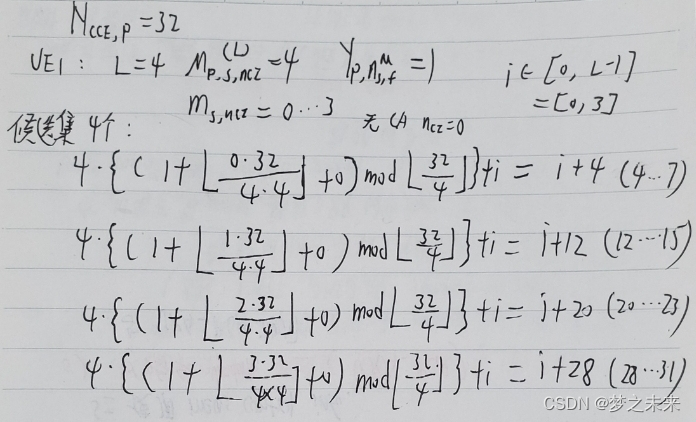 N_CCE,p = 32
UE1: L=4 M_p,s,ncz^(L) = 4 Y_p,ns,f^μ = 1 i ∈ [0, L-1]
m_s,ncz = 0…3 无CA ncz=0 = [0, 3]
候选集 4个:
4·{(1+⌊0·32/4·4⌋+0) mod ⌊32/4⌋}+i = i+4 (4…7)
4·{(1+⌊1·32/4·4⌋+0) mod ⌊32/4⌋}+i = i+12 (12…15)
4·{(1+⌊2·32/4·4⌋+0) mod ⌊32/4⌋}+i = i+20 (20…23)
4·{(1+⌊3·32/4×4⌋+0) mod ⌊32/4⌋}+i = i+28 (28…31)
CSDN @梦之未来